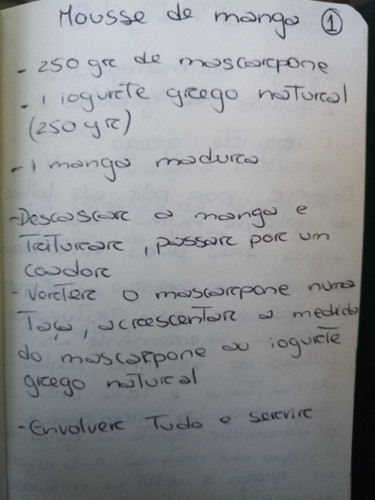 Mousse de manga 1
- 250 gr de mascarpone
- 1 iogurte grego natural
(250 gr)
- 1 manga madura
- Descascar a manga e
triturar, passar por um
coador
- Verter o mascarpone numa
taça, acrescentar a medida
do mascarpone ou iogurte
grego natural
- Envolver tudo e servir